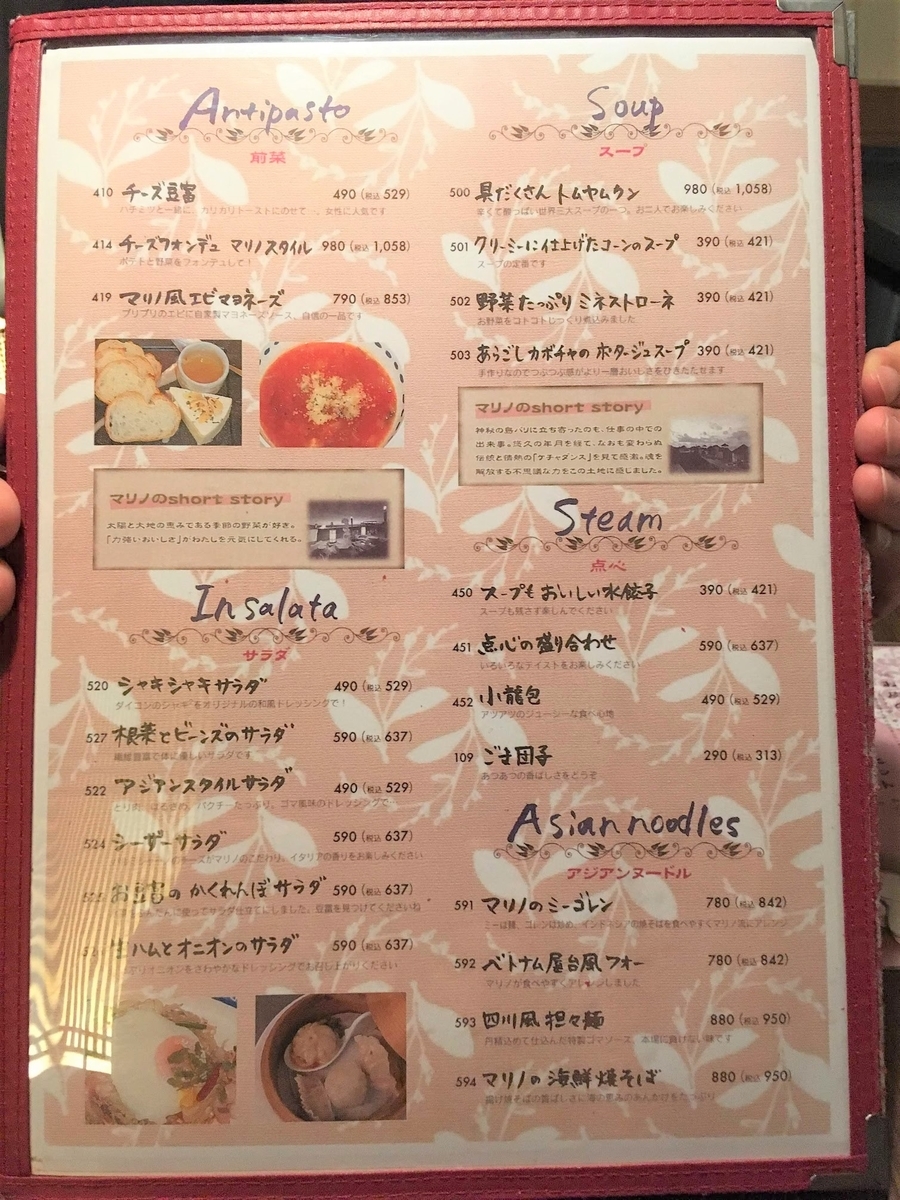 Antipasto
前菜
410 チーズ豆富 490 (税込 529)
ハチミツと一緒に、カリカリトーストにのせて…。女性に人気です
414 チーズフォンデュ マリノスタイル 980 (税込 1,058)
ポテトと野菜をフォンデュして!
419 マリノ風エビマヨネーズ 790 (税込 853)
プリプリのエビに自家製マヨネーズソース、自信の一品です
マリノのshort story
太陽と大地の恵みである季節の野菜が好き。
「力強いおいしさ」がわたしを元気にしてくれる。
Insalata
サラダ
520 シャキシャキサラダ 490 (税込 529)
ダイコンのシャキシャキをオリジナルの和風ドレッシングで!
527 根菜とビーンズのサラダ 590 (税込 637)
繊維豊富で体に優しいサラダです
522 アジアンスタイルサラダ 490 (税込 529)
とり肉、はるさめ、パクチーたっぷり。ゴマ風味のドレッシングで…
524 シーザーサラダ 590 (税込 637)
チーズがマリノのこだわり、イタリアの香りをお楽しみください
525 お豆富の かくれんぼサラダ 590 (税込 637)
使ってサラダ仕立てにしました。豆富を見つけてくださいね
生ハムとオニオンのサラダ 590 (税込 637)
オニオンをさわやかなドレッシングでお召し上がりください
Soup
スープ
500 具だくさん トムヤムクン 980 (税込 1,058)
辛くて酸っぱい世界三大スープの一つ。お二人でお楽しみください
501 クリーミーに仕上げたコーンのスープ 390 (税込 421)
スープの定番です
502 野菜たっぷり ミネストローネ 390 (税込 421)
お野菜をコトコトじっくり煮込みました
503 あらごしカボチャの ポタージュスープ 390 (税込 421)
手作りなのでつぶつぶ感がより一層おいしさをひきたたせます
マリノのshort story
神秘の島バリに立ち寄ったのも、仕事の中での
出来事。悠久の年月を経て、なおも変わらぬ
伝統と情熱の「ケチャダンス」を見て感激。魂を
解放する不思議な力をこの土地に感じました。
Steam
点心
450 スープも おいしい水餃子 390 (税込 421)
スープも残さず楽しんでください
451 点心の盛り合わせ 590 (税込 637)
いろいろなテイストをお楽しみください
452 小龍包 490 (税込 529)
アツアツのジューシーな食べ心地
109 ごま団子 290 (税込 313)
あつあつの香ばしさをどうぞ
Asian noodles
アジアンヌードル
591 マリノのミーゴレン 780 (税込 842)
ミーは麺、ゴレンは炒め、インドネシアの焼そばを食べやすくマリノ流にアレンジ
592 ベトナム屋台風フォー 780 (税込 842)
マリノが食べやすくアレンジしました
593 四川風 担々麺 880 (税込 950)
丹精込めて仕込んだ特製ゴマソース、本場に負けない味です
594 マリノの 海鮮焼そば 880 (税込 950)
揚げ焼そばの香ばしさに海の恵みのあんかけをたっぷり